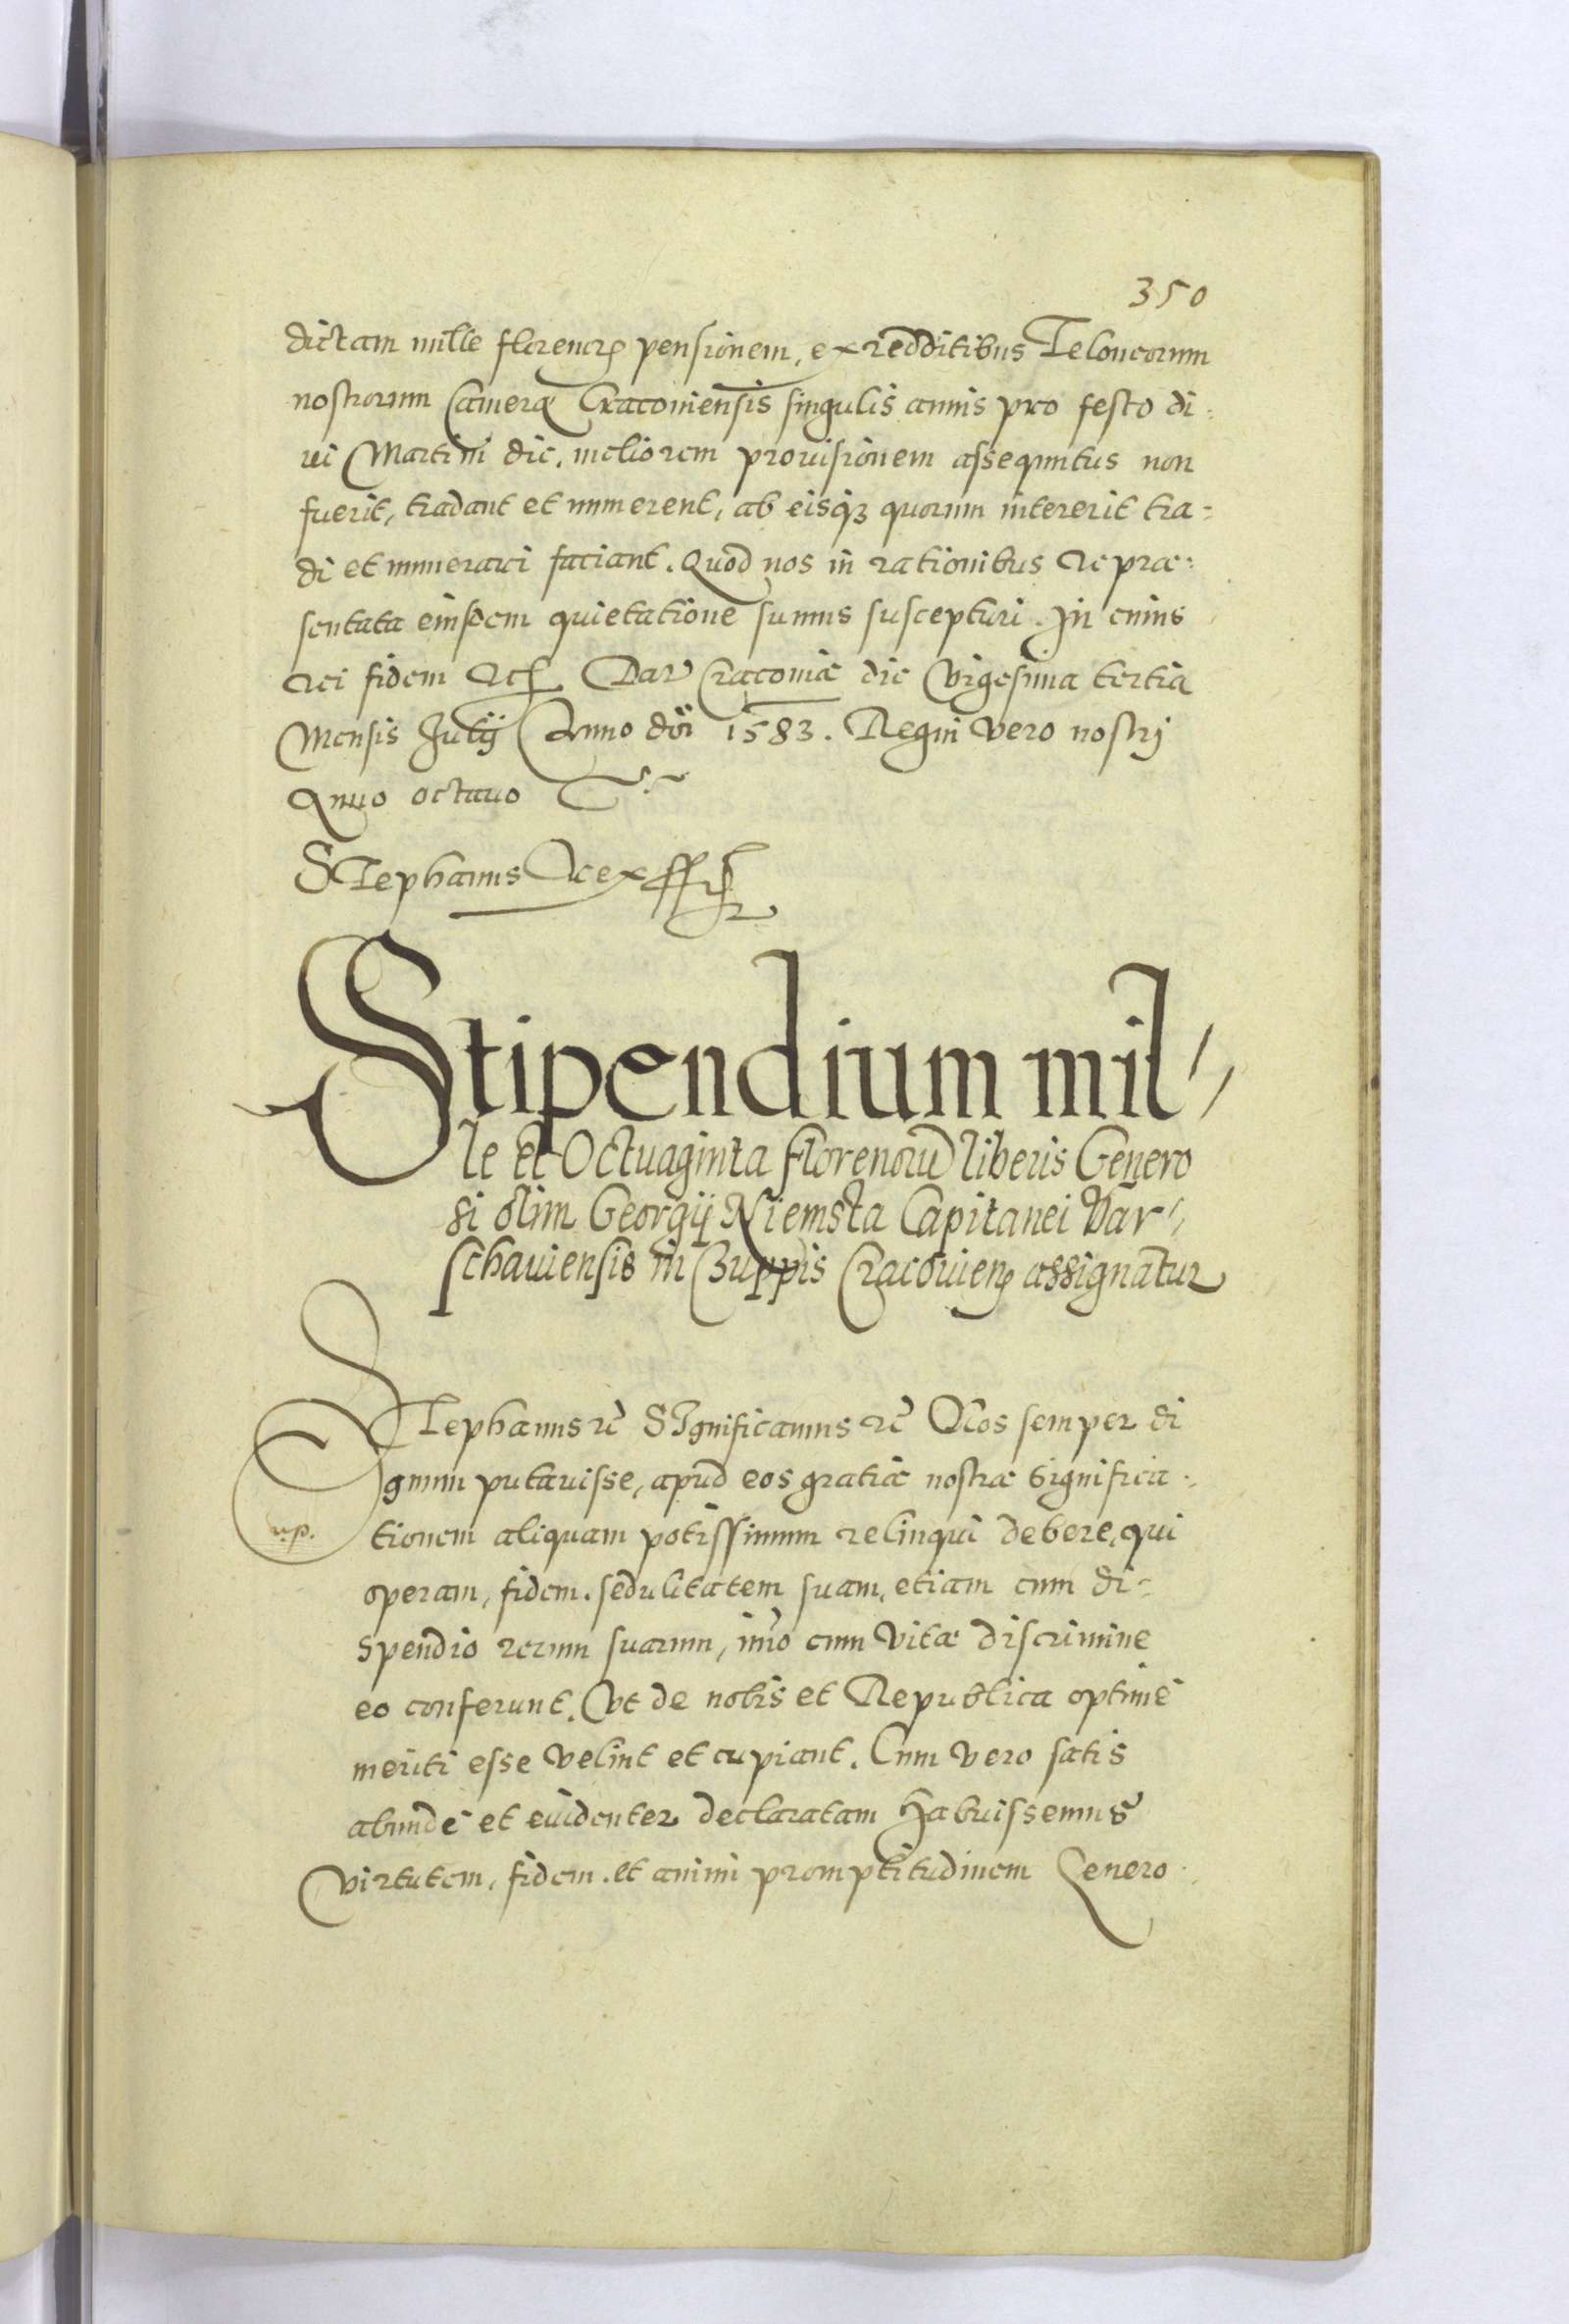 350
dictam mille florenorꝝ pensionem, ex redditibus Teloneorum
nostrorum Cameræ Cracouiensis singulis annis pro festo di:
ui Martini die, meliorem prouisionem assequutus non
fuerit, tradant et numerent, ab eisqꝫ quorum intererit tra:
di et numerari faciant. Quod nos in rationibus Repræ:
sentata eiusdem quietatione sumus suscepturi. In cuius
rei fidem Rc̃ Datꝭ Cracouiæ die Vigesima tertia
Mensis Julij Anno dñi 1583. Regni vero nostrj
Anno octauo
Stephanus Rex ssst
Stipendium mil
le et Octuaginta florenorũ liberis Genero
si olim Georgij Niemsta Capitanei Var
schauiensis in Zuppis Cracouieñ assignatur
Stephanus rc̃ SIgnificamus rc̃ Nos semper di
gnum putauisse, apud eos gratiæ nostræ significa:
n.p.
tionem aliquam potissimum relinqui debere, qui
operam, fidem, sedulitatem suam, etiam cum di:
spendio rerum suarum, imò cum vitæ discrimine
eo conferunt, Vt de nobis et Republica optimè
meriti esse velint et cupiant. Cum vero satis
abundè et euidenter declaratam habuissemus
virtutem, fidem, et animi promptitudinem Genero